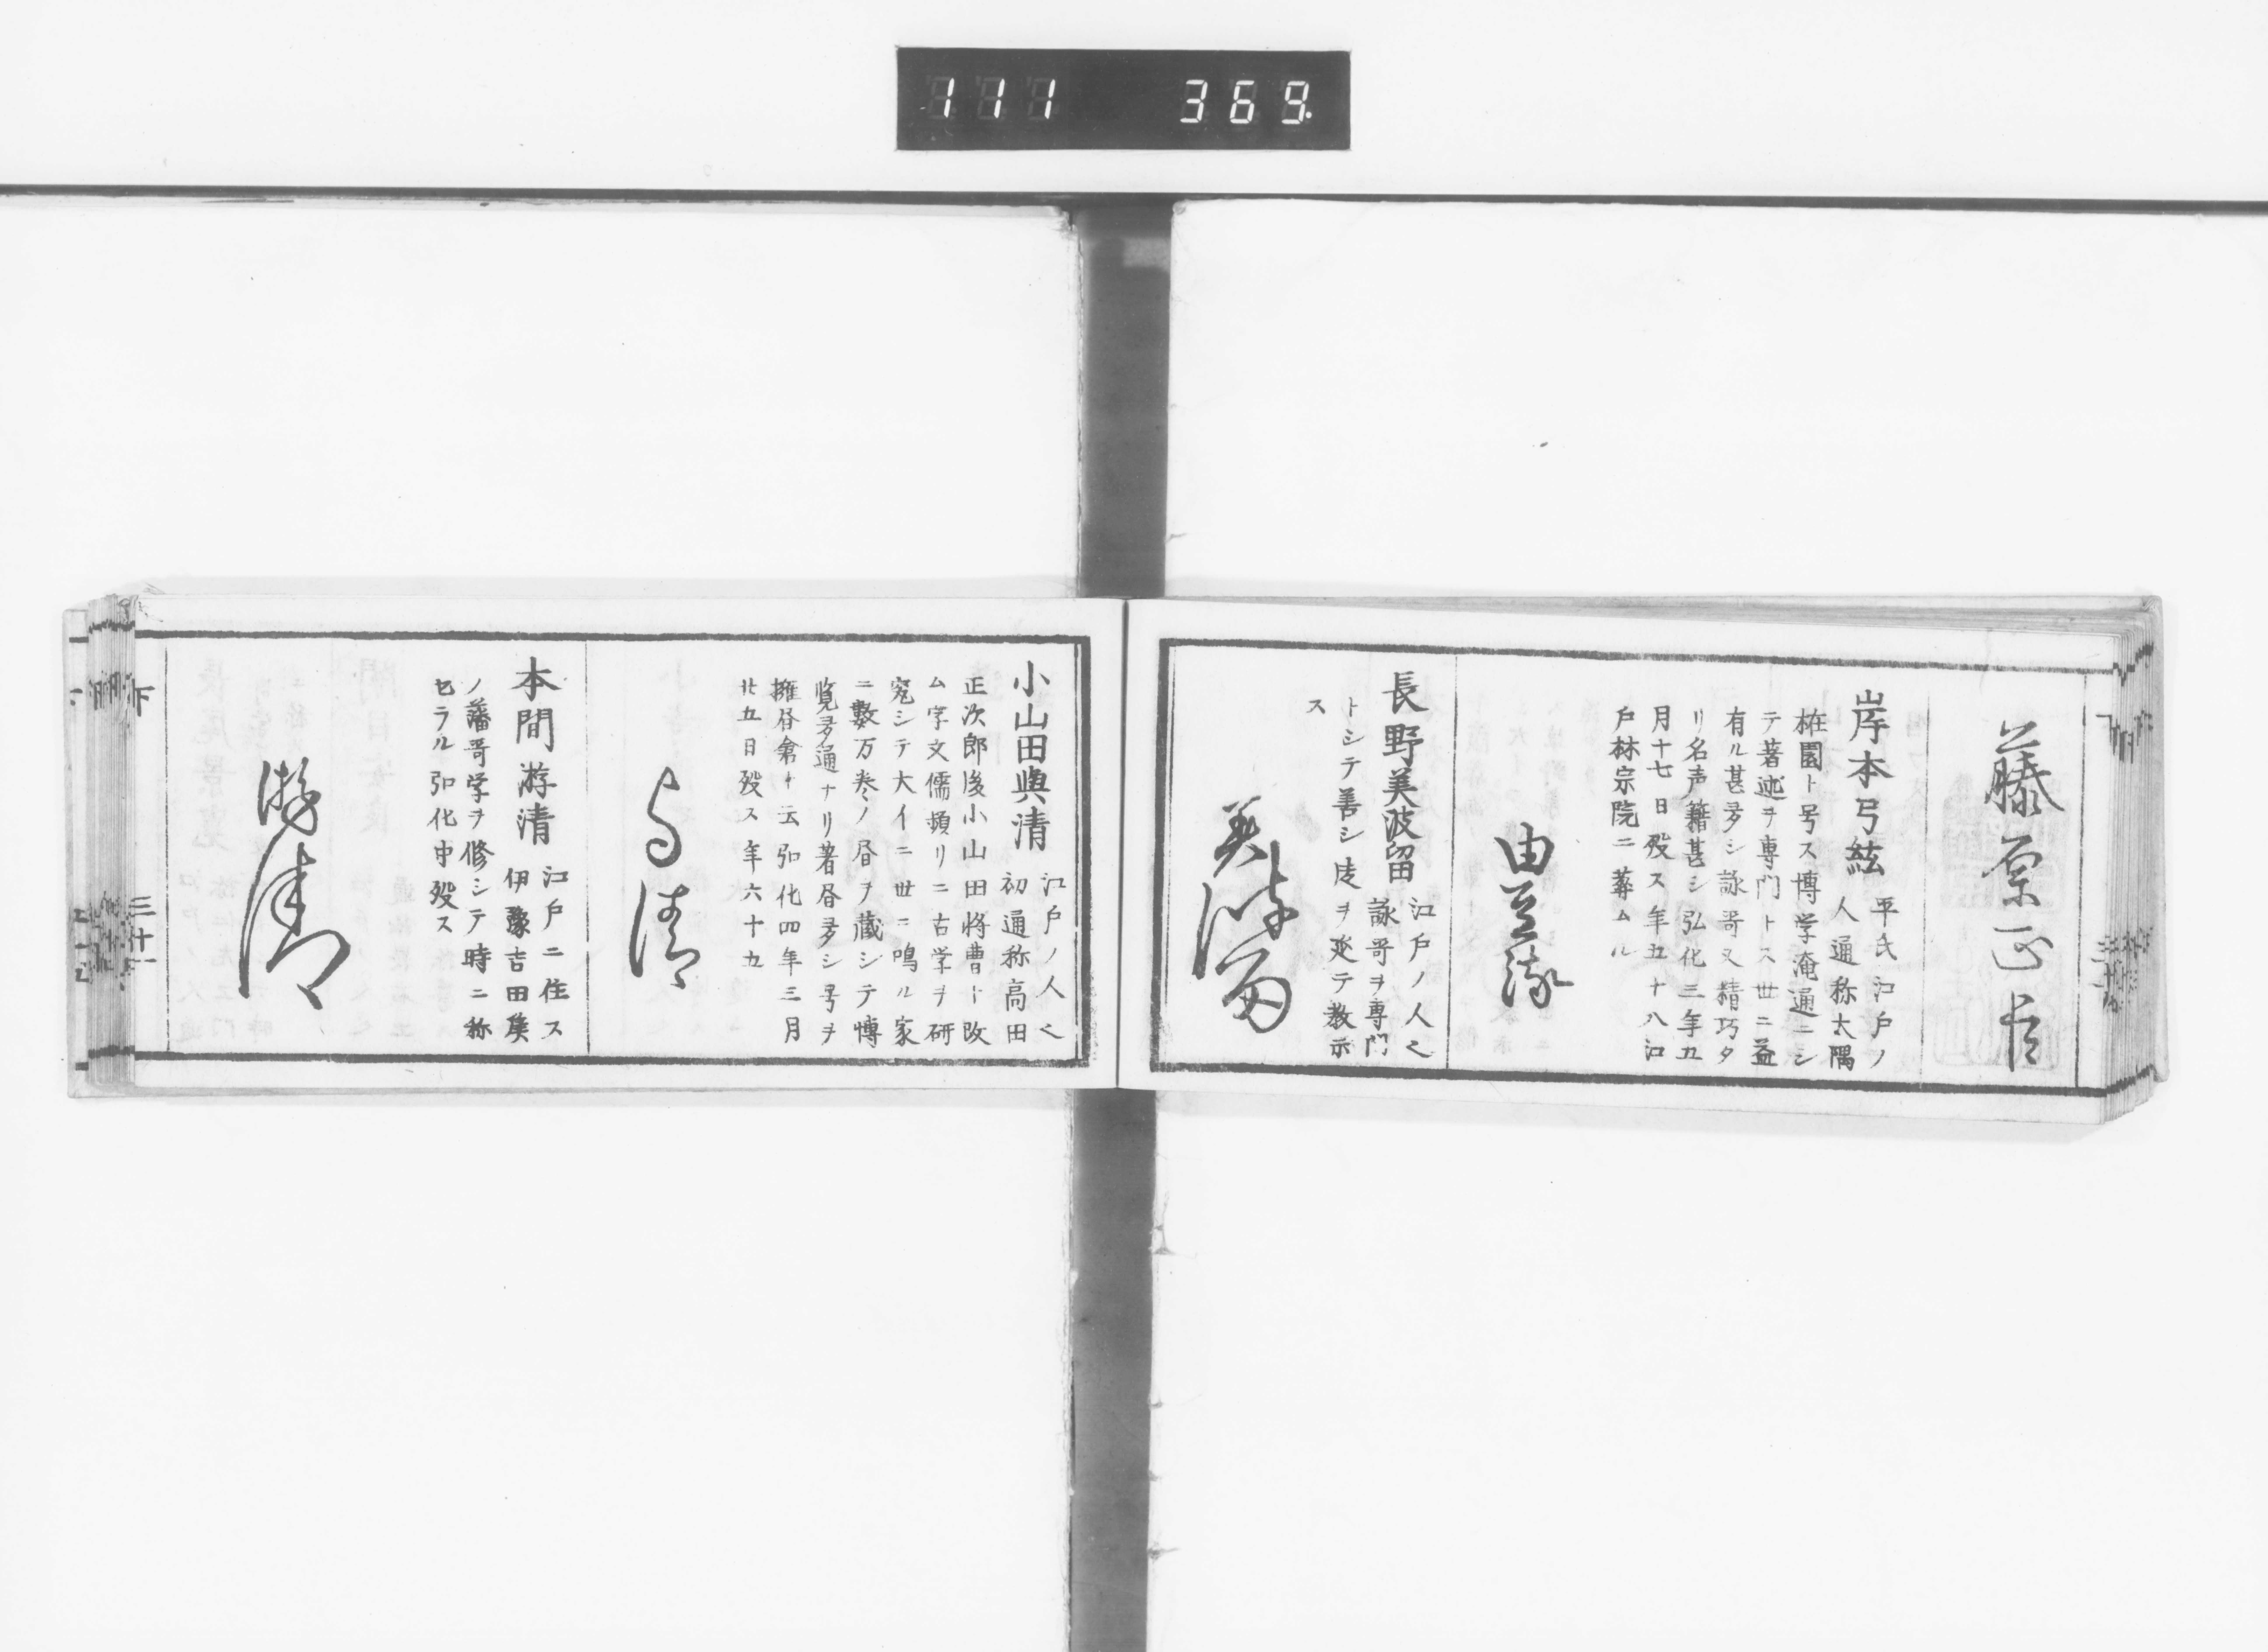 111 369.
藤原正臣
岸本弓絃
平氏江戸ノ
人通称大隅
椎園ト号ス博学淹通ニシ
テ著述ヲ専門トス世ニ益
有ル甚多シ詠哥又精巧タ
リ名声籍甚シ弘化三年五
月十七日歿ス年五十八江
戸林宗院ニ葬ムル
由豆流
長野美波留
江戸ノ人也
詠哥ヲ専門
トシテ善シ徒ヲ延テ教示
ス
美波留
小山田與清
江戸ノ人也
初通称高田
正次郎後小山田将曹ト改
ム字文儒頻リニ古学ヲ研
究シテ大イニ世ニ鳴ル家
ニ數万巻ノ昼ヲ藏シテ博
覧多通ナリ著昼多シ号ヲ
擁昼倉ト云弘化四年三月
廿五日歿ス年六十五
与清
本間游清
江戸ニ住ス
伊豫吉田侯
ノ藩哥学ヲ修シテ時ニ称
セラル弘化中歿ス
游清
下
三十一